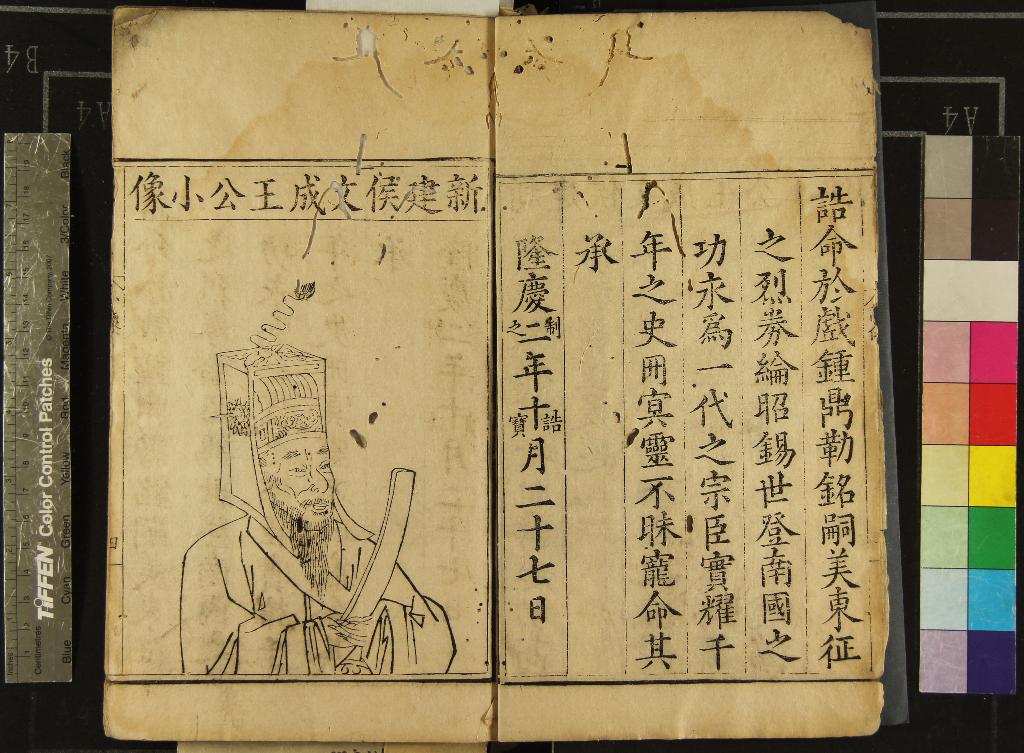 誥命於戲鍾鼎勒銘嗣美東征
之烈券綸昭錫世登南國之
功永爲一代之宗臣實耀千
年之史冊冥靈不昧寵命其
承
隆慶二年十月二十七日
制
之
誥
寶
新建侯文成王公小像
TIFFEN Color Control Patches
Centimetres
Inches
Blue Cyan Green Yellow Red Magenta White 3/Color Black
B4
A4
A4